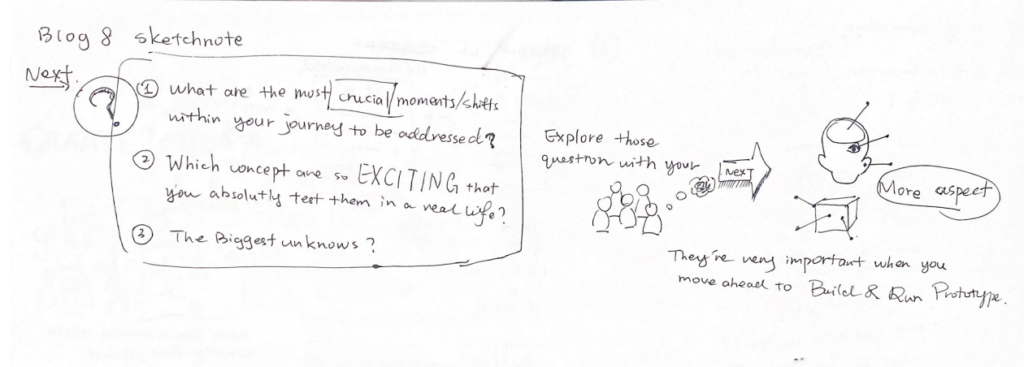 Blog 8 sketchnote
Next.
?
① What are the most crucial moments/shifts
within your journey to be addressed?
② Which concept are so EXCITING that
you absolutly test them in a real life?
③ The Biggest unknows?
Explore those
question with your
NEXT
More aspect
They're very important when you
move ahead to Build & Run Prototype.